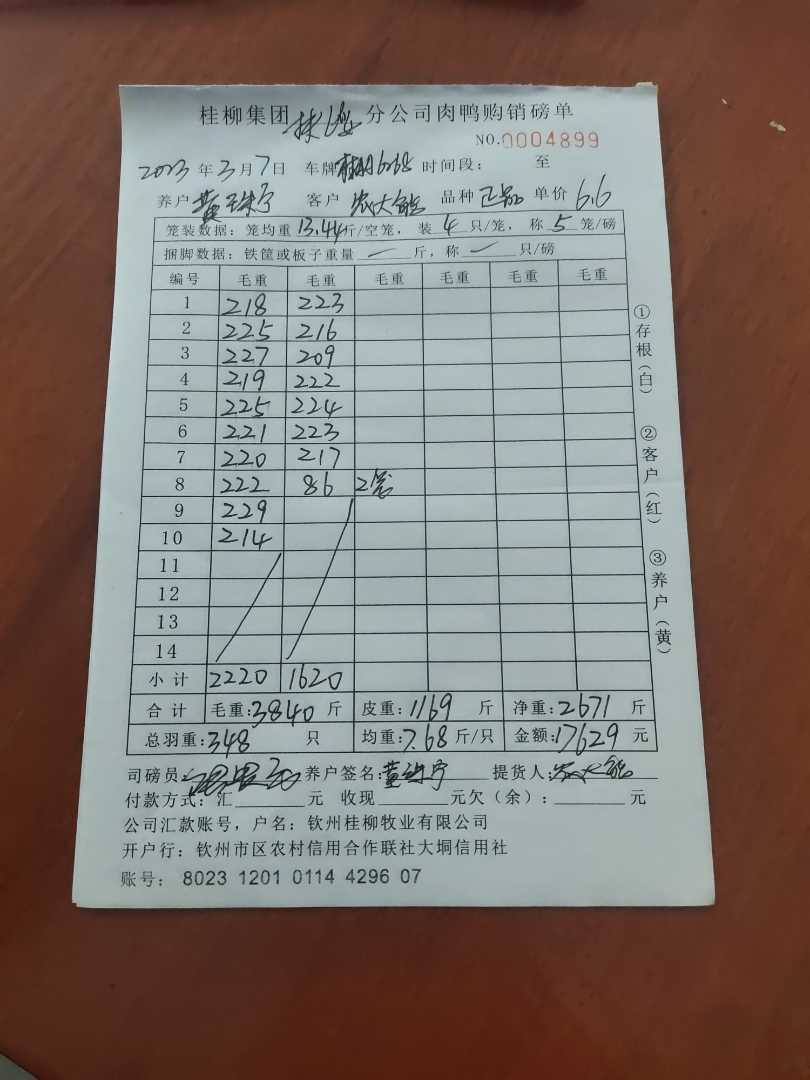 桂柳集团 分公司肉鸭购销磅单
NO.0004899
2023 年 3 月 7 日 车牌 6268 时间段: 至
养户 黄 宁 客户 农大能 品种 正品 单价 6.6
笼装数据: 笼均重 13.44 斤/空笼, 装 4 只/笼, 称 5 笼/磅
捆脚数据: 铁筐或板子重量 — 斤, 称 — 只/磅
编号 毛重 毛重 毛重 毛重 毛重 毛重
1 218 223
2 225 216
3 227 209
4 219 222
5 225 224
6 221 223
7 220 217
8 222 86 2笼
9 229
10 214
11
12
13
14
小计 2220 1620
合计 毛重:3840 斤 皮重:1169 斤 净重:2671 斤
总羽重:348 只 均重:7.68 斤/只 金额:17629 元
司磅员: 养户签名:黄 宁 提货人:农大能
付款方式: 汇 元 收现 元欠(余): 元
公司汇款账号, 户名: 钦州桂柳牧业有限公司
开户行: 钦州市区农村信用合作联社大垌信用社
账号: 8023 1201 0114 4296 07
①存根(白)
②客户(红)
③养户(黄)